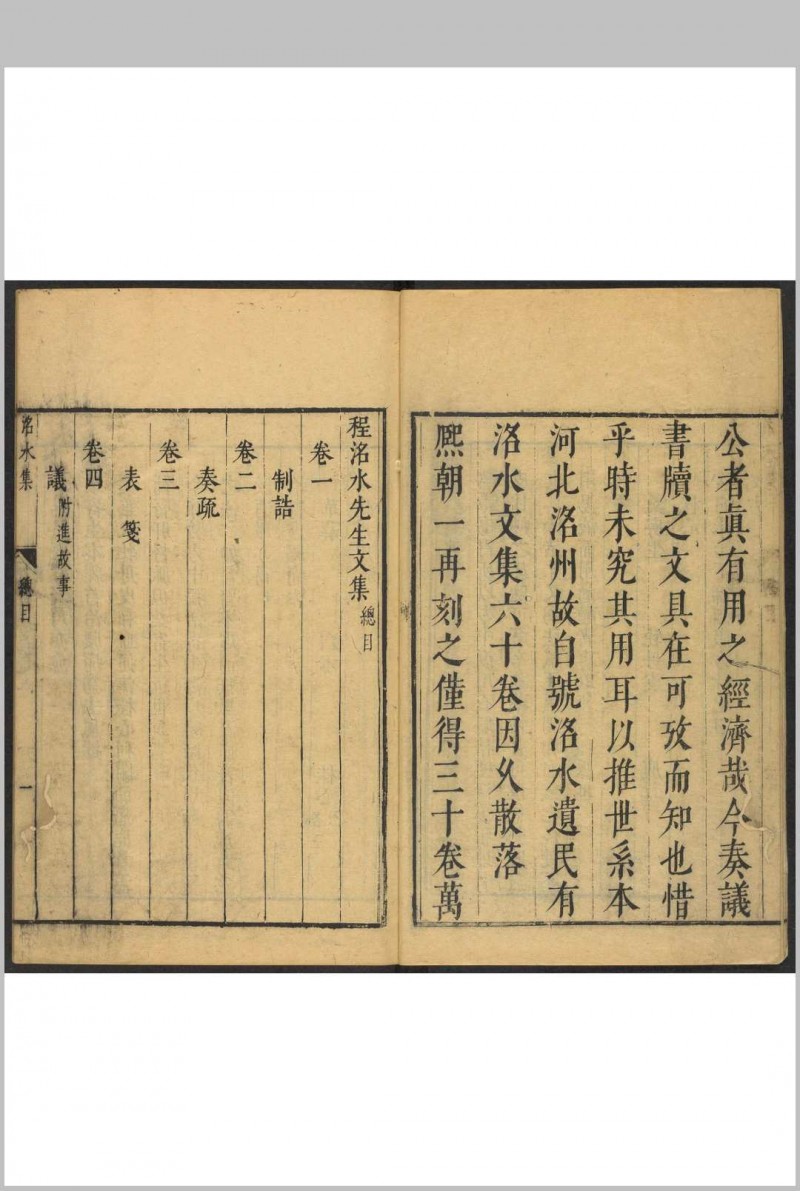 公者眞有用之經濟哉今奏議
書牘之文具在可攷而知也惜
乎時未究其用耳以推世系本
河北洺州故自號洺水遺民有
洺水文集六十卷因久散落
熈朝一再刻之僅得三十卷萬
程洺水先生文集 總目
卷一
制誥
卷二
奏疏
卷三
表箋
卷四
議 附進故事
洺水集 總目 一